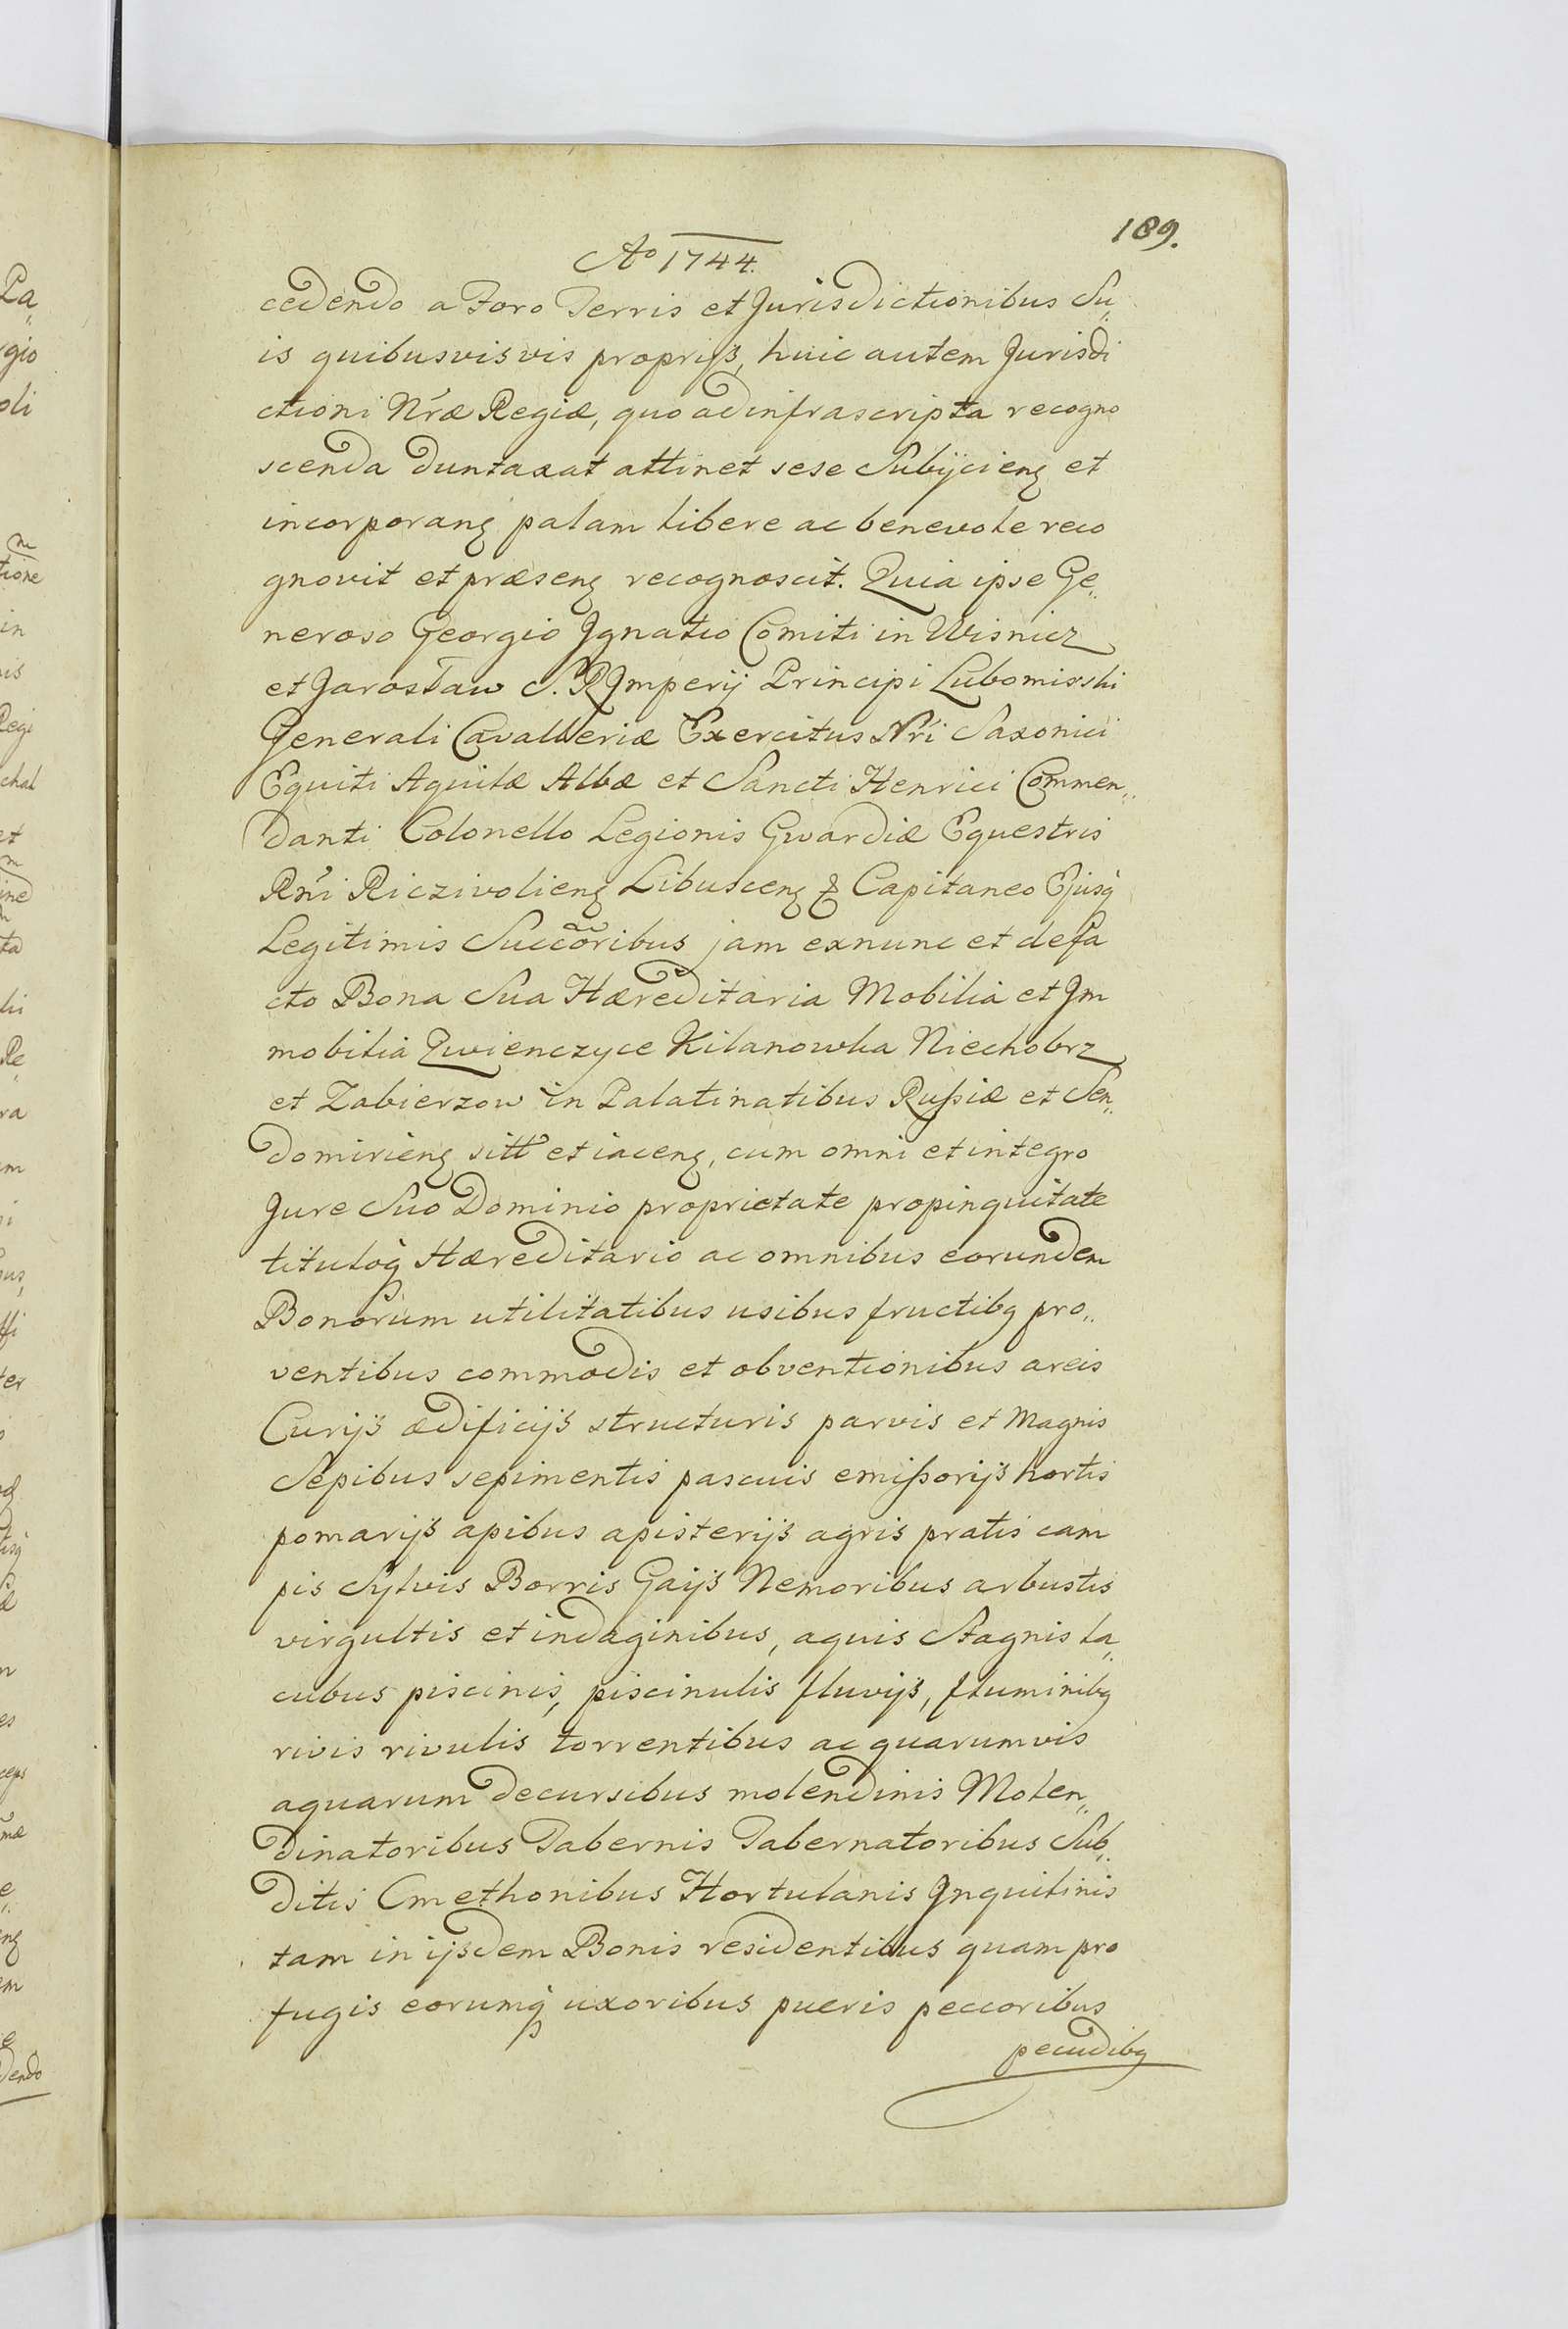 189.
Ao 1744.
cedendo a Foro Terris et Jurisdictionibus Su„
is quibusvisvis proprijs, huic autem Jurisdi
ctioni Nræ Regiæ, quo ad infrascripta recogno
scenda duntaxat attinet sese Subijcienʒ et
incorporanʒ palam libere ac benevole reco
gnovit et præsenʒ recognoscit. Quia ipse Ge„
neroso Georgio Jgnatio Comiti in Wisnicz
et Jarosław S. R Jmperij Principi Lubomirski
Generali Cavalleriæ Exercitus Nri Saxonici
Equiti Aquilæ Albæ et Sancti Henrici Commen„
danti Colonello Legionis Gwardiæ Equestris
Rni Riczivolienʒ Libuscenʒ & Capitaneo Ejusq̀
Legitimis Succõribus jam exnunc et defa
cto Bona Sua Hæreditaria Mobilia et Jm
mobilia Zwienczyce Kilanowka Niechobrz
et Zabierzow in Palatinatibus Russiæ et Sen„
domirienʒ sitt et iacenʒ, cum omni et integro
Jure Suo Dominio proprietate propinquitate
tituloq̀ Hæreditario ac omnibus eorundem
Bonorum utilitatibus usibus fructibq pro„
ventibus commodis et obventionibus areis
Curijs ædificijs structuris parvis et Magnis
Sepibus sepimentis pascuis emissorijs hortis
pomarijs apibus apisterijs agris pratis cam
pis Sylvis Borris Gaijs Nemoribus arbustis
virgultis et indaginibus, aquis Stagnis la„
cubus piscinis, piscinulis fluvijs, fluminibq
rivis rivulis torrentibus ac quarumvis
aquarum decursibus molendinis Molen„
dinatoribus Tabernis Tabernatoribus Sub„
ditis Cmethonibus Hortulanis Jnquilinis
tam in ijsdem Bonis residentibus quam pro
fugis eorumq̀ uxoribus pueris peccoribus
pecudibq